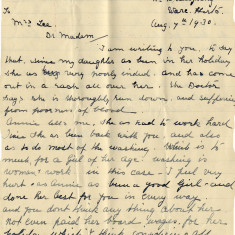 Ware. Herts.
To
Aug. 7th 1930.
Mrs Lee.
Dr Madem/
I am writing to you to say
that. Since my daughter as been in her Holiday
she as very poorly indeed. and has come
out in a rash all over her. The Doctor
says she is thoroughly run down. and suffering
from poorness of blood
Annie tells me. She as had to work hard
since she as been back with you. and also
as to do most of the washing. Which is to
much for a Girl of her Age. washing is
womans work. in this case. I feel very
hurt. as Annie as been a good Girl. and
done her best for you in every way.
and you dont think any thing about her
not even paid her board wages. for her
holiday which I think